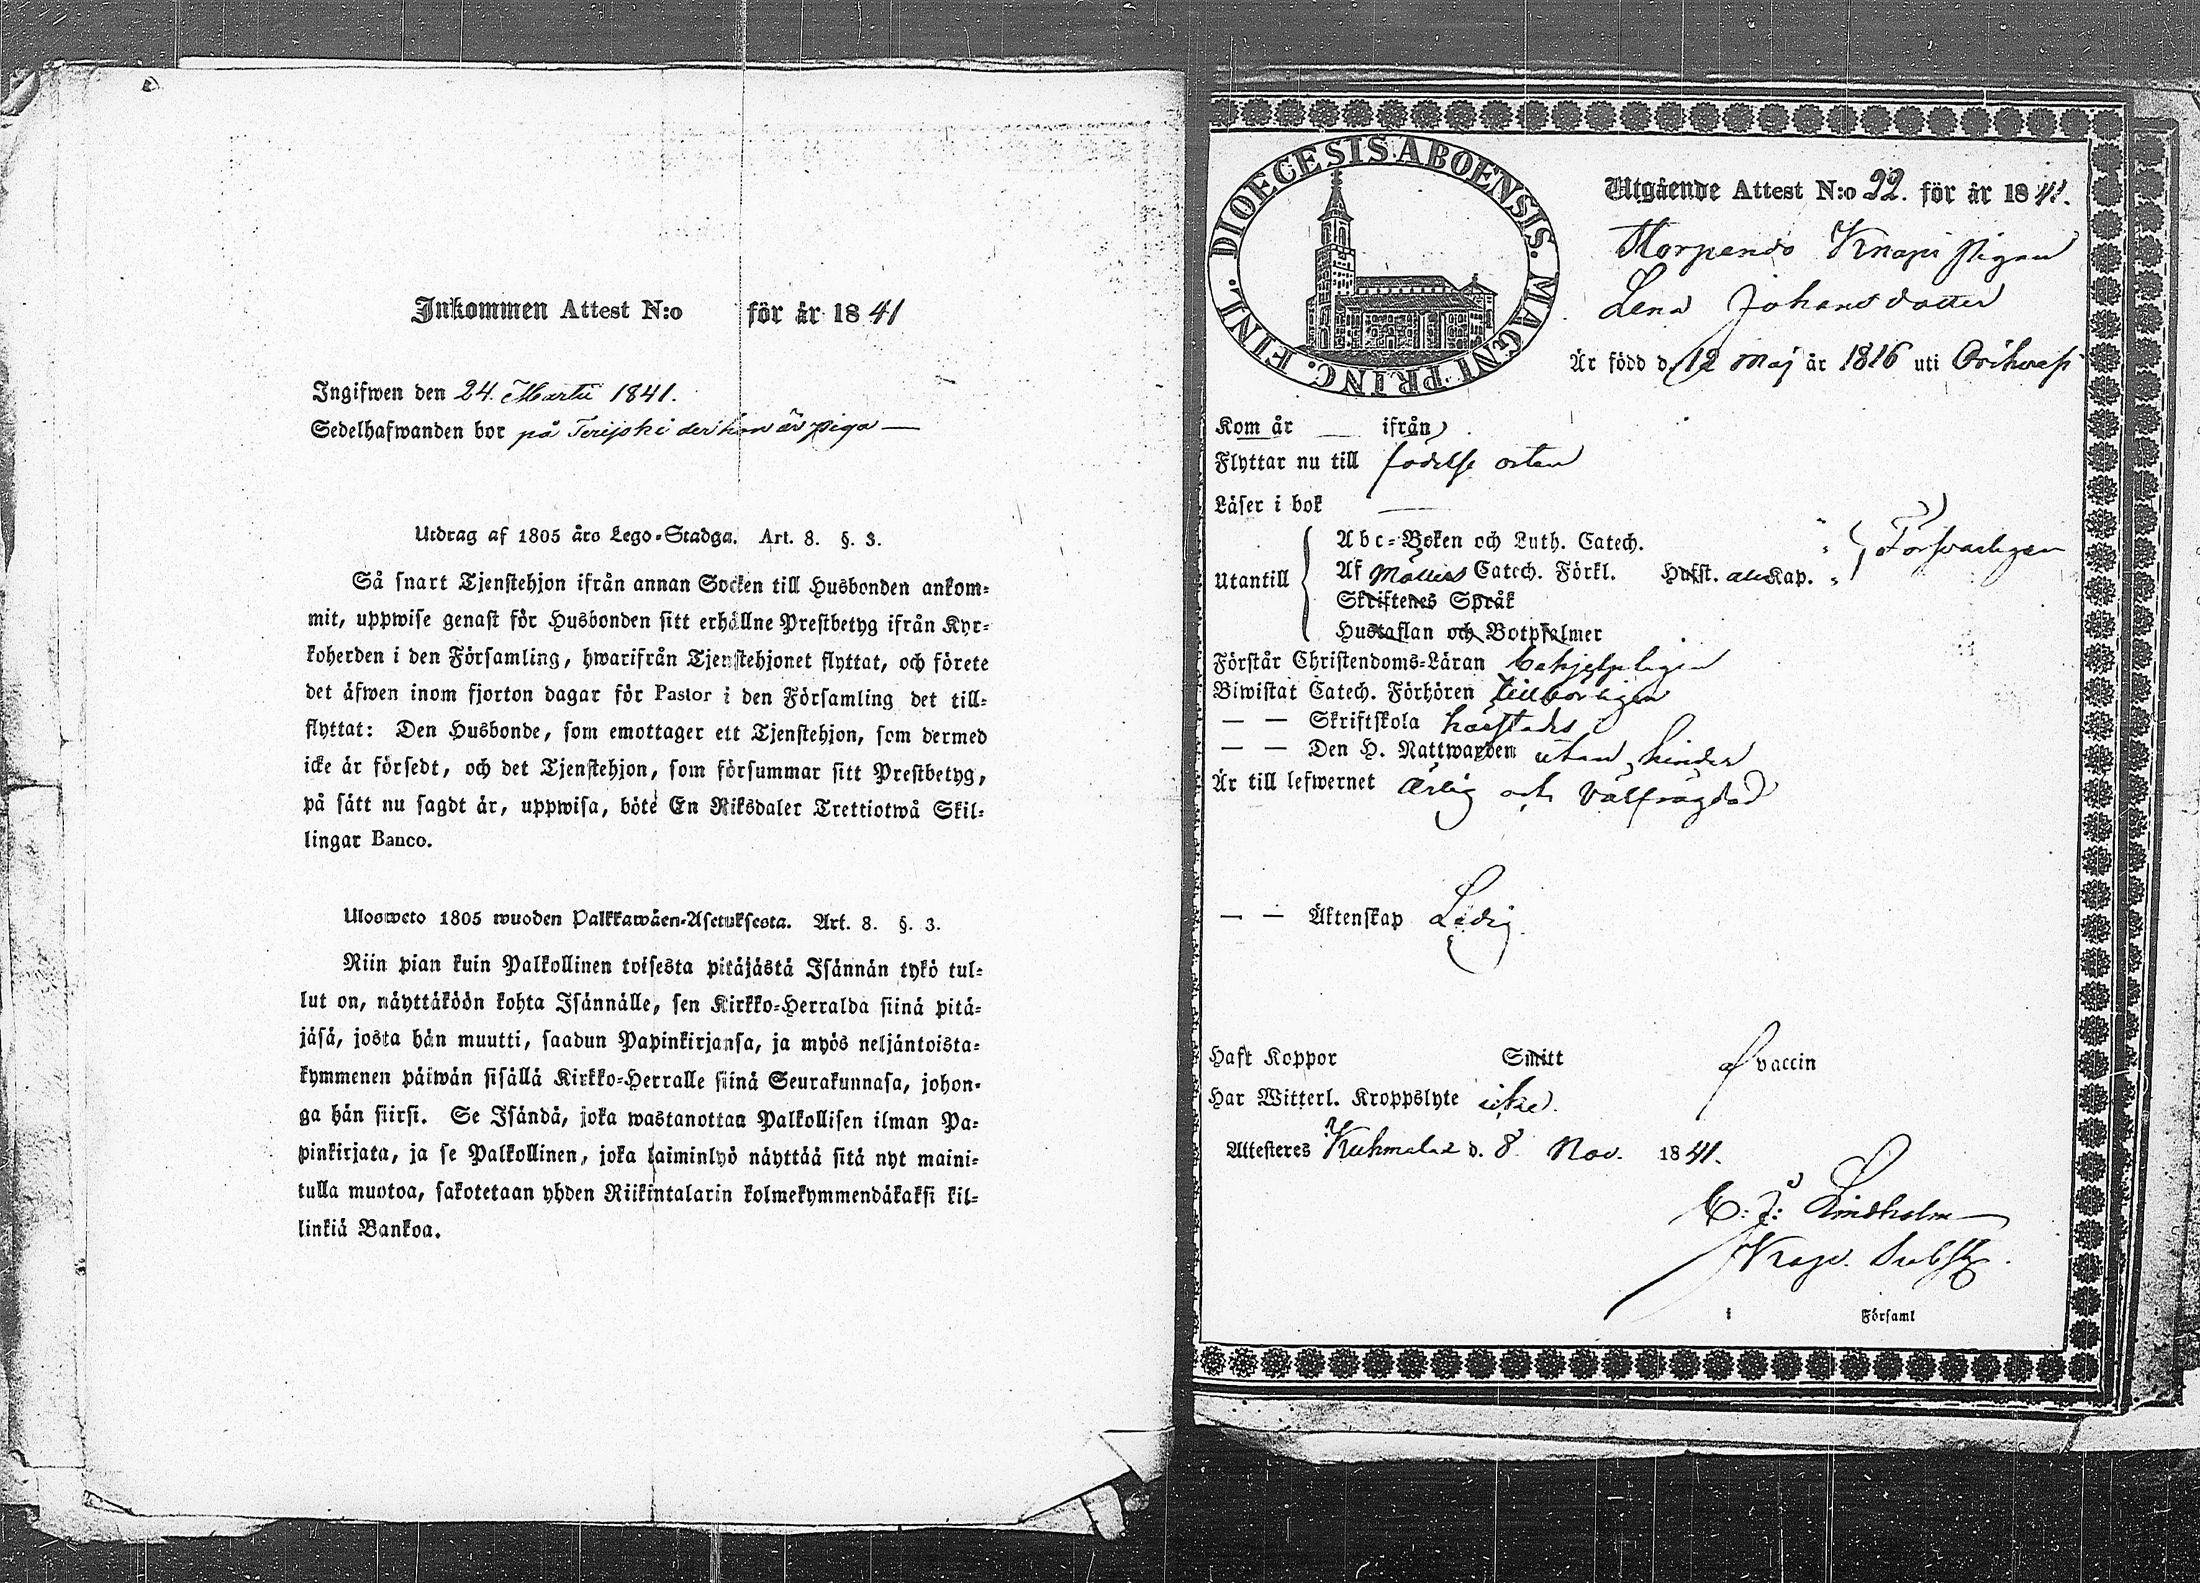 Inkommen Attest N:o för år 1841
Ingifwen den 24. Martii 1841.
Sedelhafwanden bor på der hon är piga —
Utdrag af 1805 års Lego-Stadga. Art. 8. §. 3.
Så snart Tjenstehjon ifrån annan Socken till Husbonden ankom-
mit, uppwise genast för Husbonden sitt erhållne Prestbetyg ifrån Kyr-
koherden i den Församling, hwarifrån Tjenstehjonet flyttat, och förete
det äfwen inom fjorton dagar för Pastor i den Församling det till-
flyttat: Den Husbonde, som emottager ett Tjenstehjon, som dermed
icke är försedt, och det Tjenstehjon, som försummar sitt Prestbetyg,
på sätt nu sagdt är, uppwisa, böte En Riksdaler Trettiotwå Skil-
lingar Banco.
Ulosweto 1805 wuoden Palkkawäen-Asetuksesta. Art. 8. §. 3.
Niin pian kuin Palkollinen toisesta pitäjästä Isännän tykö tul-
lut on, näyttäköön kohta Isännälle, sen Kirkko-Herralda siinä pitä-
jäsä, josta hän muutti, saadun Papinkirjansa, ja myös neljäntoista-
kymmenen päiwän sisällä Kirkko-Herralle siinä Seurakunnasa, johon-
ga hän siirsi. Se Isändä, joka wastanottaa Palkollisen ilman Pa-
pinkirjata, ja se Palkollinen, joka laiminlyö näyttää sitä nyt maini-
tulla muotoa, sakotetaan yhden Riikintalarin kolmekymmendäkaksi kil-
linkiä Bankoa.
DIOECESIS ABOENSIS. MAGNI PRINC. FINL.
Utgående Attest N:o 22. för år 1841.
Knapi Pigan
Lena Johansdotter
Är född d. 12 Maj år 1816 uti Orihvesi
Kom år — ifrån
Flyttar nu till födelse orten
Läser i bok —
Utantill
Abc-Boken och Luth. Catech.
Af Möllers Catech. Förkl. Hufst. alla Kap.
Försvarligen
Skriftenes Språk
Hustaflan och Botpsalmer
Förstår Christendoms-Läran behjelpligen
Biwistat Catech. Förhören tillbörligen
— — Skriftskola härstädes
— — Den H. Nattwarden utan hinder
Är till lefwernet ärlig och välfrägdad
— — Äktenskap Ledig
Haft Koppor Smitt af vaccin
Har Witterl. Kroppslyte icke.
Attesteres Kuhmalax d. 8 Nov. 1841.
C: J: Lindholm
Församl